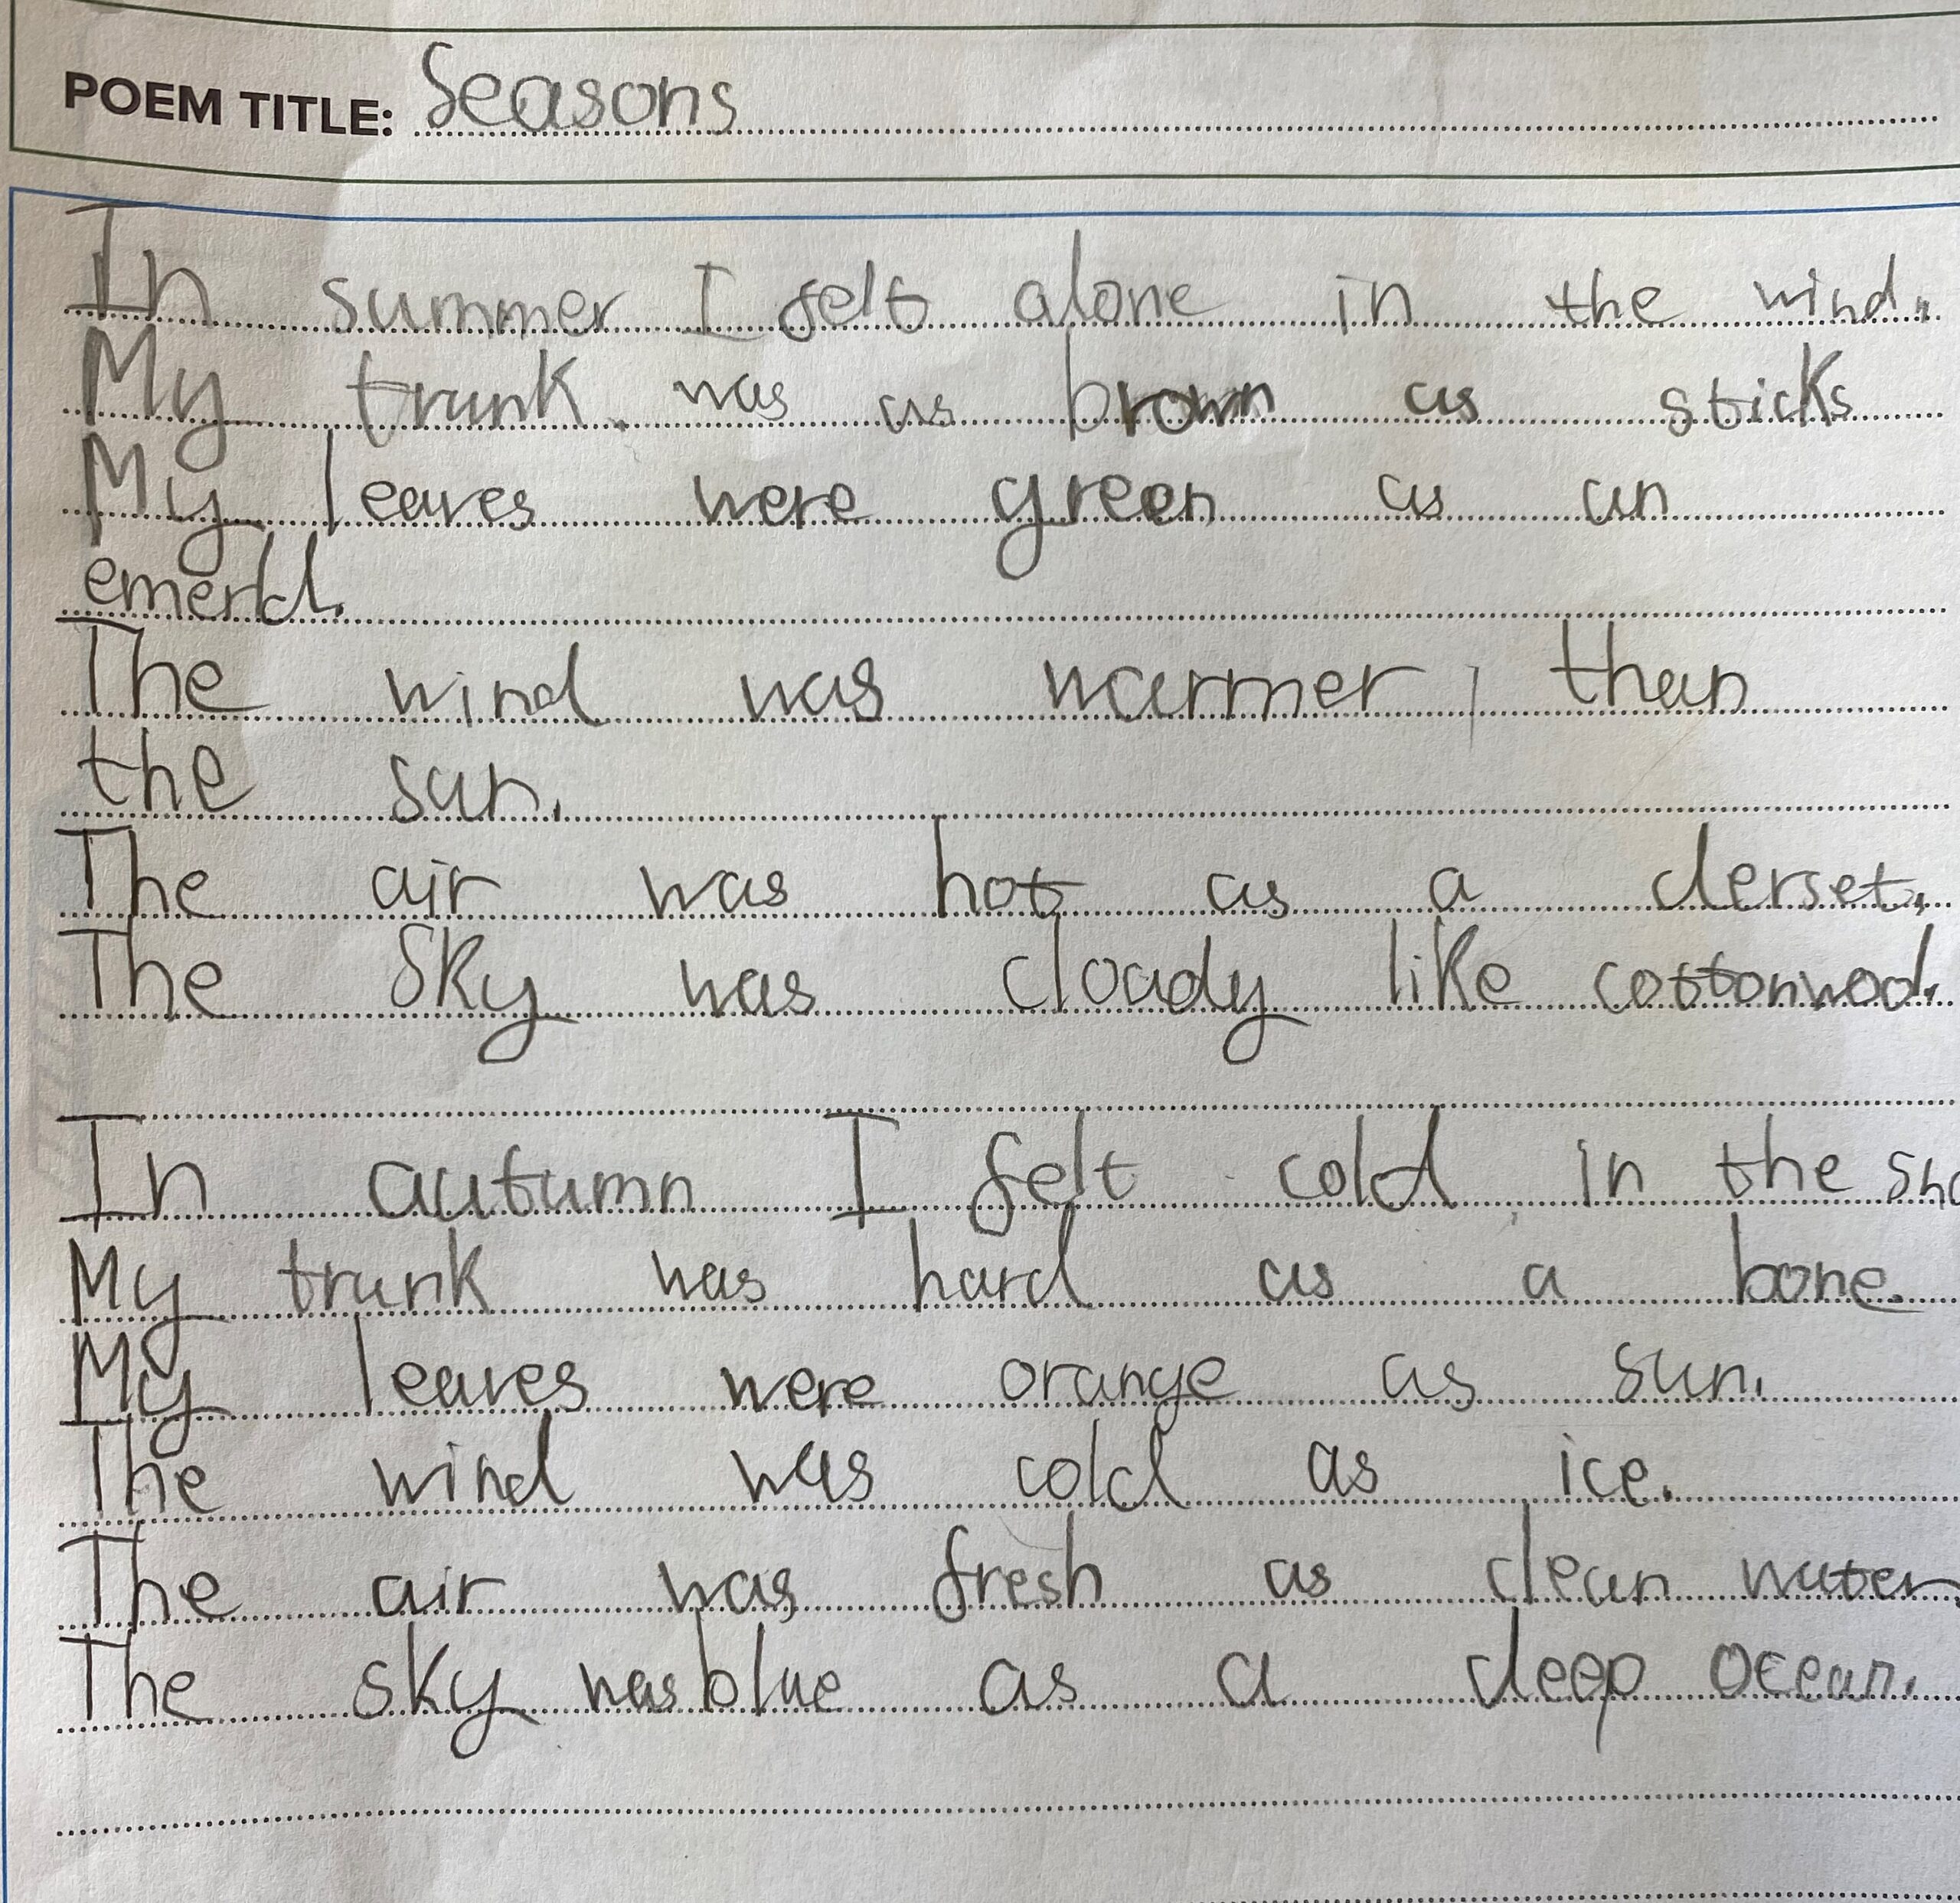 POEM TITLE: Seasons
In summer I felt alone in the wind.
My trunk was as brown as sticks
My leaves were green as an
emerld.
The wind was warmer than
the sun.
The air was hot as a derset.
The sky was cloudy like cottonwool.
In autumn I felt cold in the
My trunk was hard as a bone.
My leaves were orange as sun.
The wind was cold as ice.
The air was fresh as clean water
The sky was blue as a deep ocean.